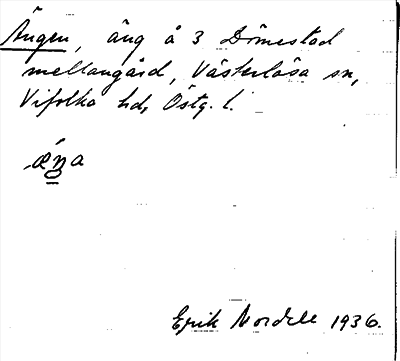 Ängen, äng å 3 Dömestad
mellangård, Västerlösa sn,
Vifolka hd, Östg. l.
Erik Nordell 1936.